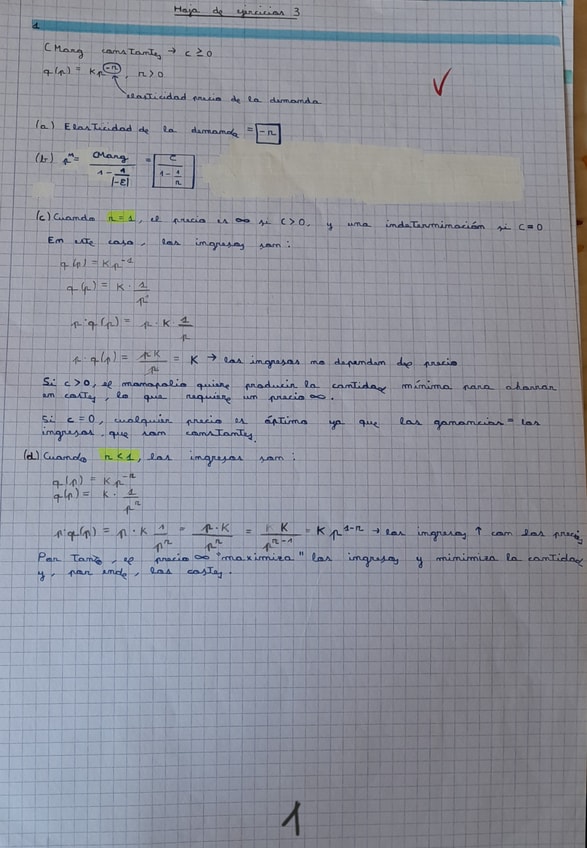 Hoja de ejercicios 3
1
CMarg constantes → c ≥ 0
q(p) = Kp^(-n), n > 0
elasticidad precio de la demanda
(a) Elasticidad de la demanda = -n
(b) p^M = CMarg / (1 - 1/|-E|) = c / (1 - 1/n)
(c) Cuando n = 1, el precio es ∞ si c > 0, y una indeterminación si c = 0
En este caso, los ingresos son:
q(p) = Kp^(-1)
q(p) = K · 1/p
p · q(p) = p · K 1/p
p · q(p) = pK/p = K → los ingresos no dependen del precio
Si c > 0, el monopolio quiere producir la cantidad mínima para ahorrar
en costes, lo que requiere un precio ∞.
Si c = 0, cualquier precio es óptimo ya que las ganancias = los
ingresos, que son constantes.
(d) Cuando n < 1, los ingresos son:
q(p) = Kp^(-n)
q(p) = K · 1/p^n
p·q(p) = p · K 1/p^n = p·K/p^n = K/p^(n-1) = K p^(1-n) → los ingresos ↑ con los precios
Por tanto, el precio ∞ "maximiza" los ingresos y minimiza la cantidad
y, por ende, los costes.
1